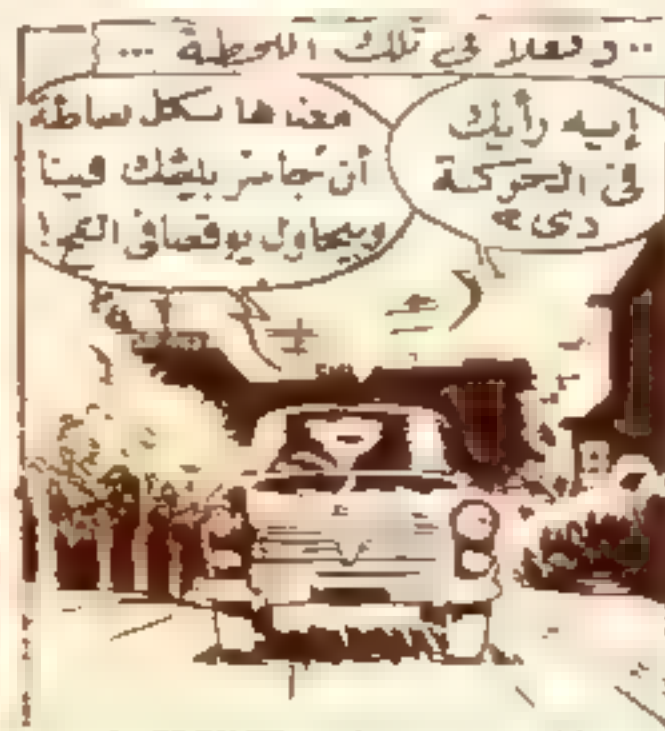 .. وفعلا فى تلك اللحظة ...
إيه رأيك
فى الحركة
دى ؟
معناها بكل بساطة
أن جامز بيشك فينا
وبيحاول يوقعنا فى